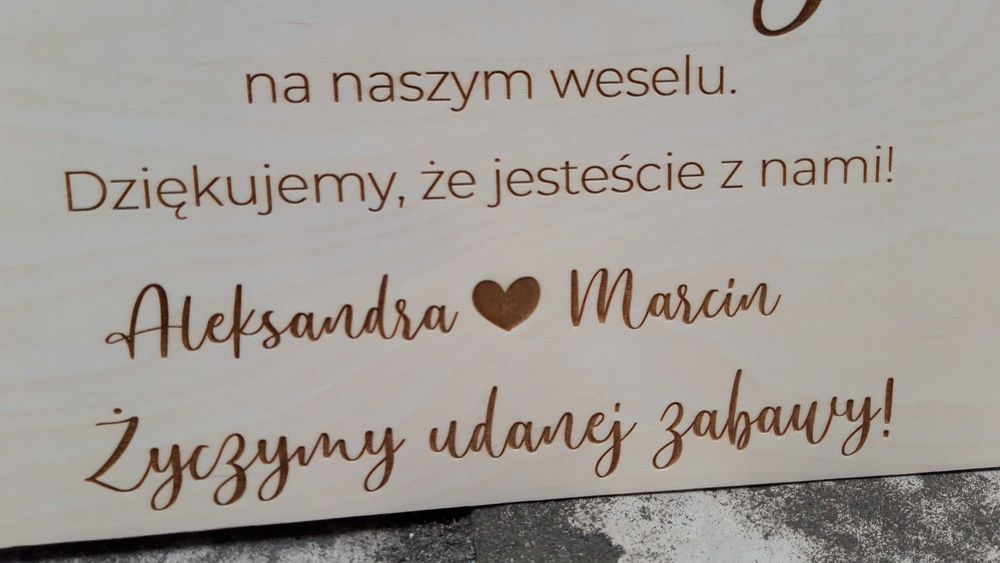 na naszym weselu.
Dziękujemy, że jesteście z nami!
Aleksandra ♥ Marcin
Życzymy udanej zabawy!